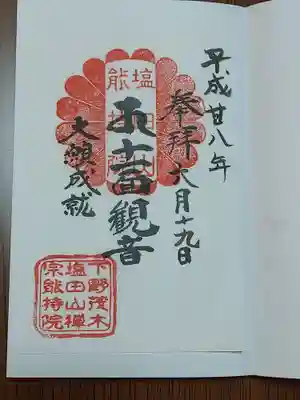 平成廿八年
奉拝 六月十九日
塩
能
観音
大願成就
下野茂木
塩田山禅
宗能持院